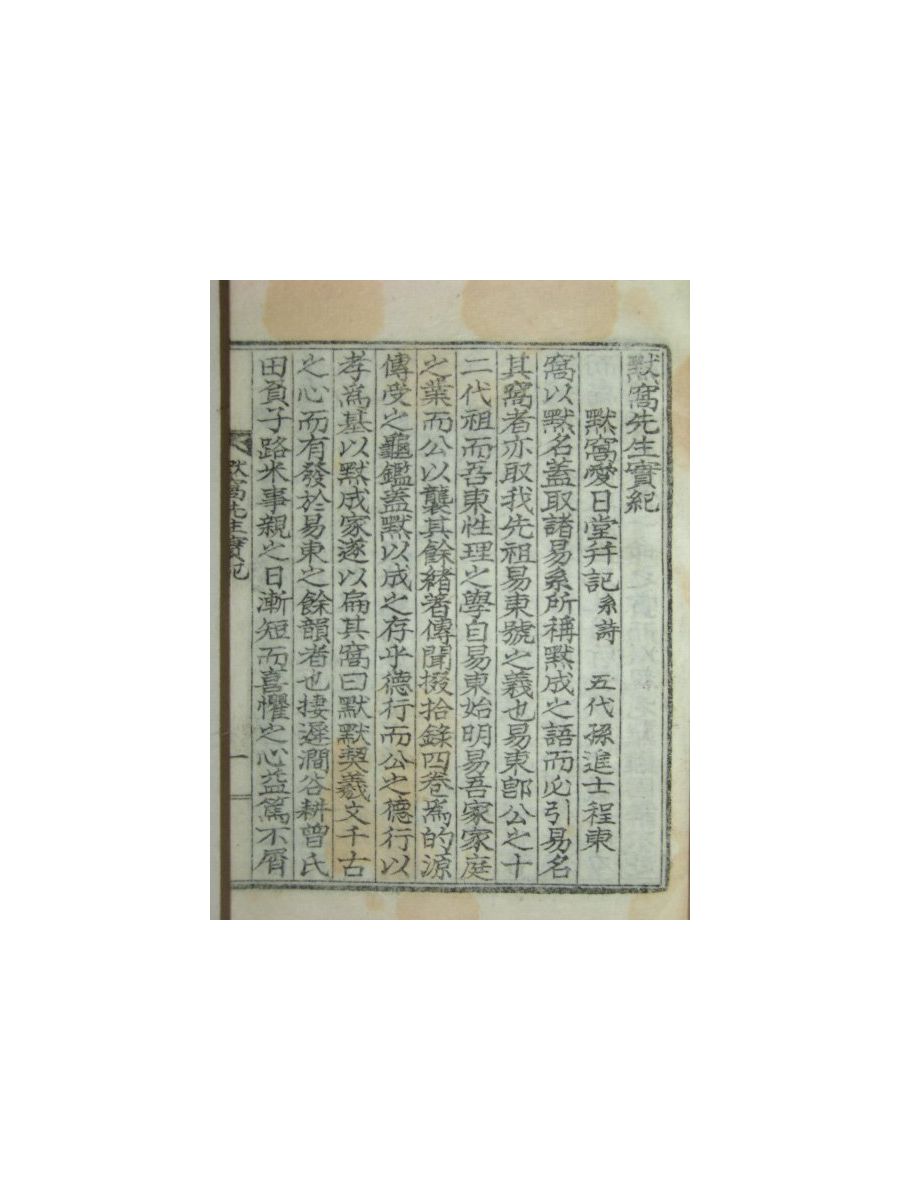 默窩先生實紀
默窩愛日堂幷記 系詩 五代孫進士程東
窩以默名盖取諸易系所稱默成之語而必引易名
其窩者亦取我先祖易東號之義也易東卽公之十
二代祖而吾東性理之學自易東始明易吾家家庭
之業而公以襲其餘緖著傳聞掇拾錄四卷爲的源
傳受之龜鑑盖默以成之存乎德行而公之德行以
孝爲基以默成家遂以扁其窩曰默默契羲文千古
之心而有發於易東之餘韻者也捿遲澗谷耕曾氏
田負子路米事親之日漸短而喜懼之心益篤不屑
默窩先生實紀
一